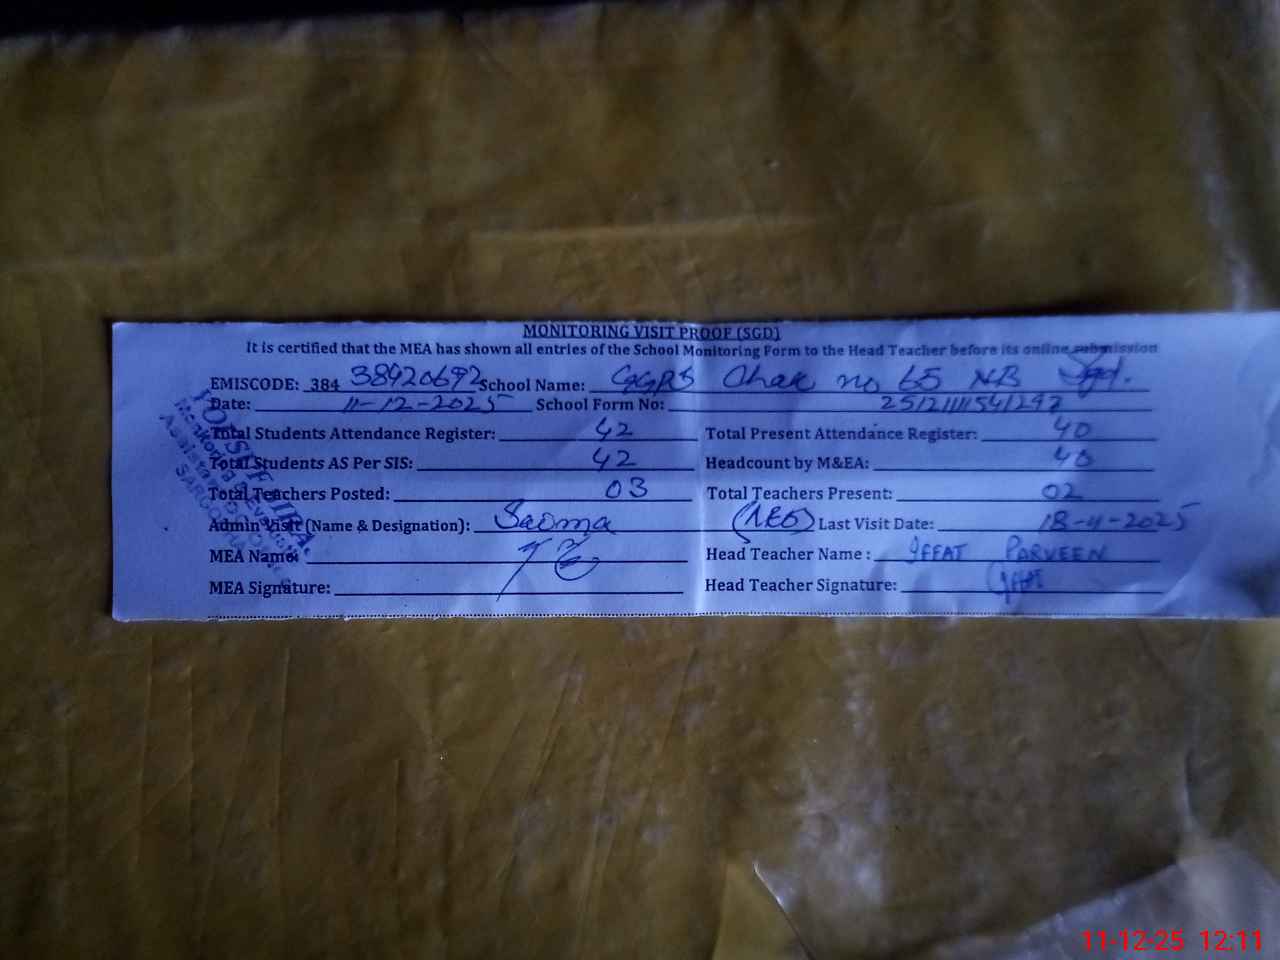 MONITORING VISIT PROOF (SGD)
It is certified that the MEA has shown all entries of the School Monitoring Form to the Head Teacher before its online submission
EMISCODE: 384 38420692 School Name: GGPS Chak no 65 NB Sgd.
Date: 11-12-2025 School Form No:
Total Students Attendance Register: 42 Total Present Attendance Register: 40
Total Students AS Per SIS: 42 Headcount by M&EA: 40
Total Teachers Posted: 03 Total Teachers Present: 02
Admin Visit (Name & Designation): (AEO) Last Visit Date: 18-11-2025
MEA Name: Head Teacher Name : IFFAT PARVEEN
MEA Signature: Head Teacher Signature: Iffat
11-12-25 12:11